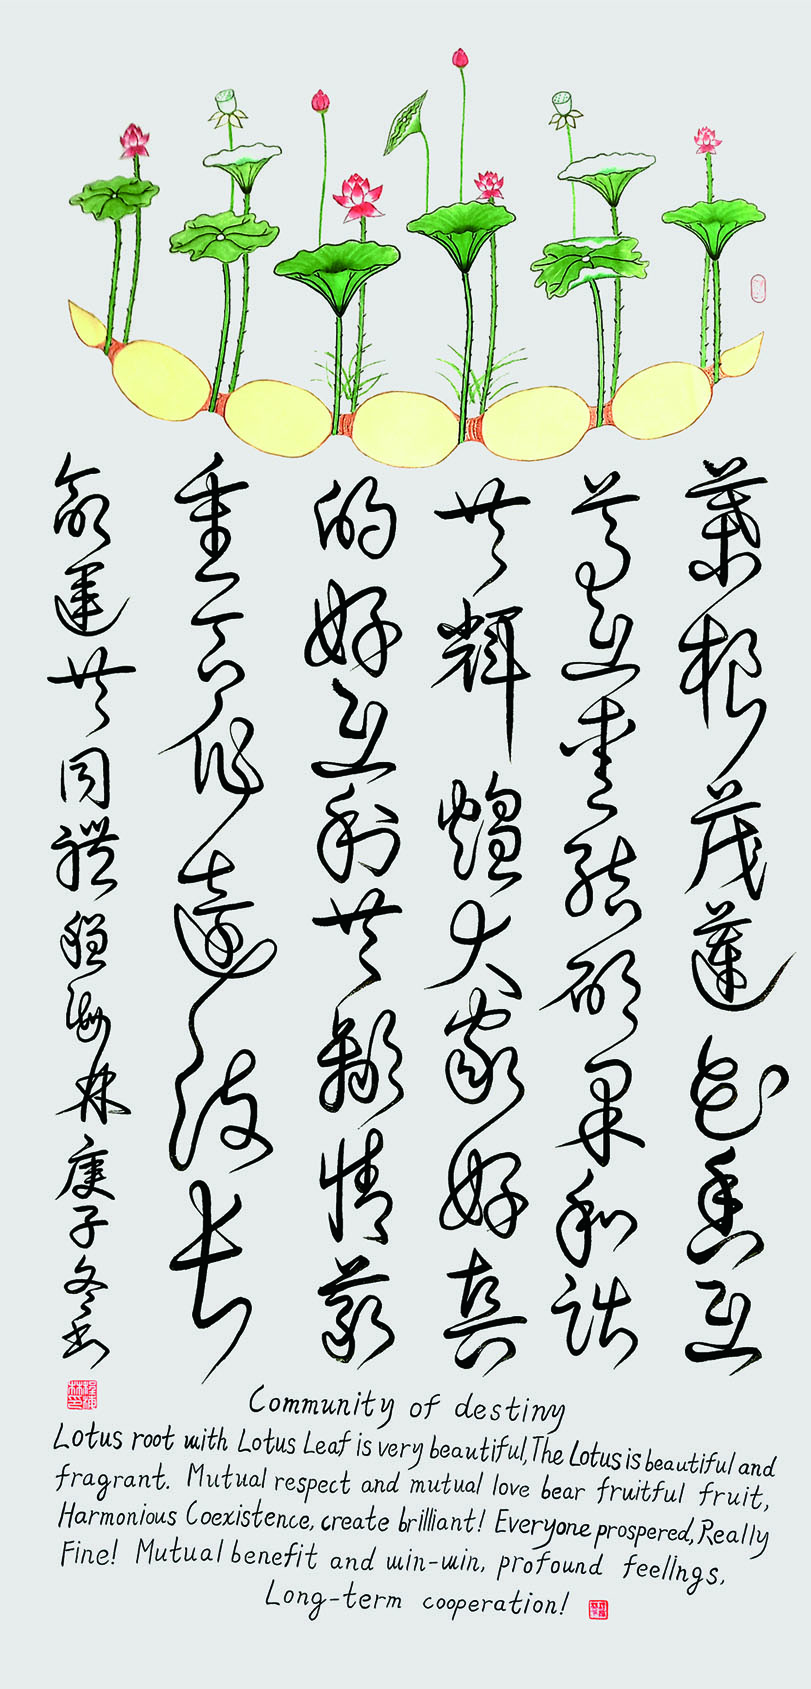 葉根茂蓮花香互
尊互爱結硕果和諧
共輝煌大家好真
的好互利共贏情義
重合作遠长
命運共同體程海林庚子冬书
Community of destiny
Lotus root with Lotus Leaf is very beautiful, The Lotus is beautiful and
fragrant. Mutual respect and mutual love bear fruitful fruit,
Harmonious Coexistence, create brilliant! Everyone prospered, Really
Fine! Mutual benefit and win-win, profound feelIngs,
Long-term cooperation!